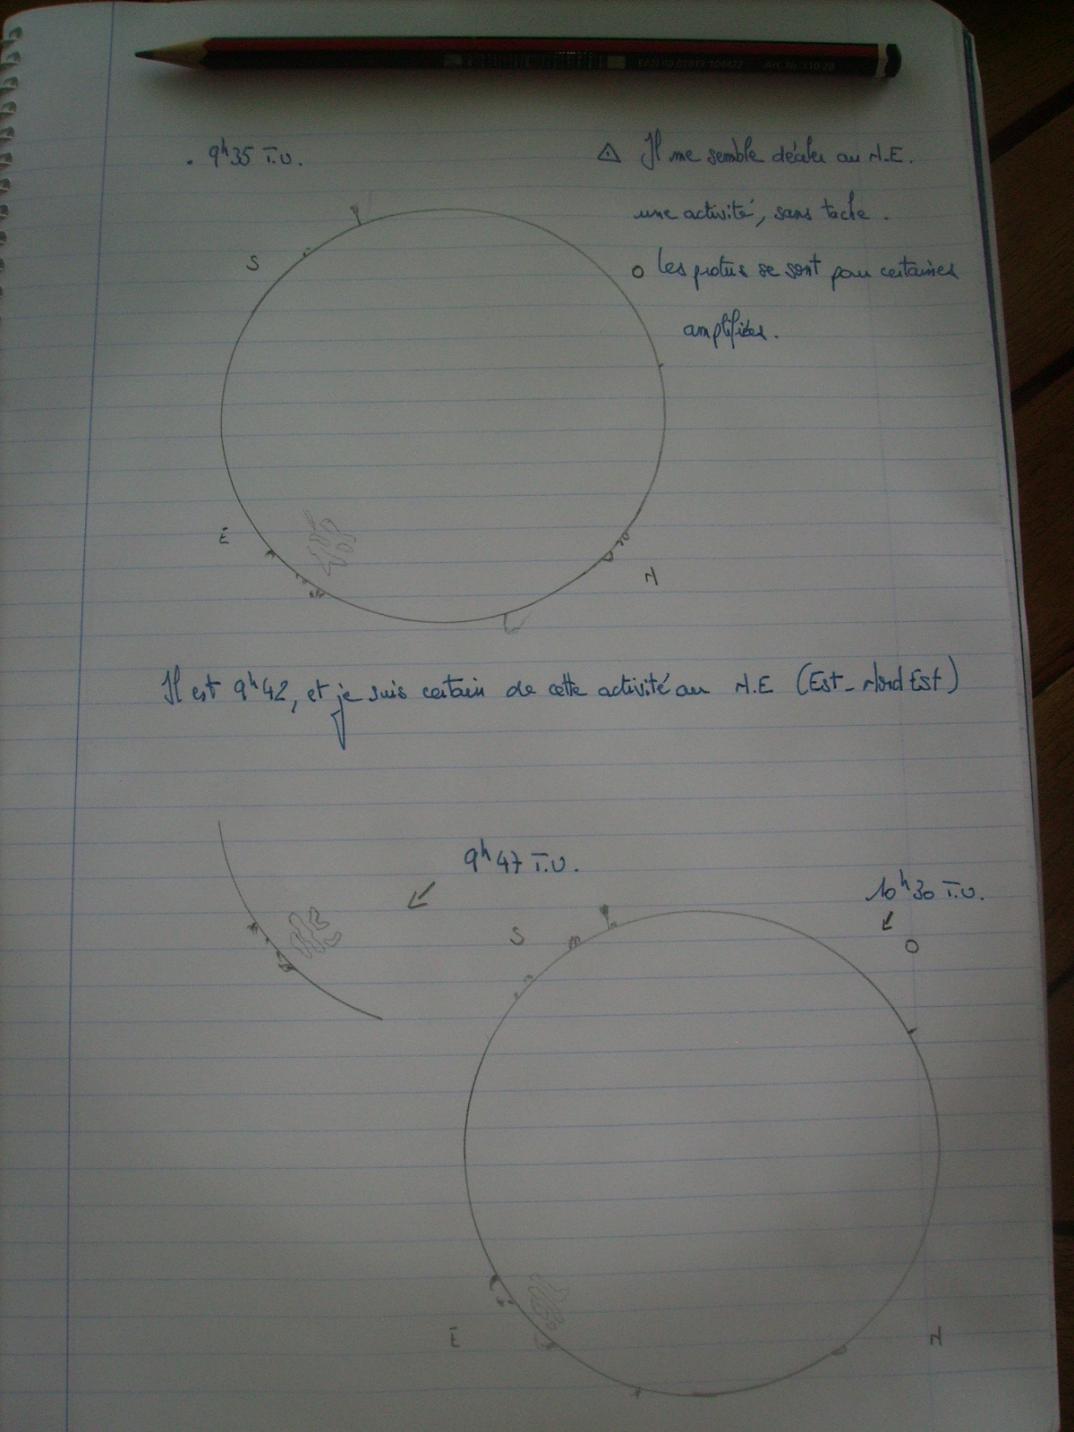 . 9h35 T.U.
⚠ Il me semble déceler au N.E.
une activité, sans tache.
S
o Les protus se sont pour certaines
amplifiées.
E
N
Il est 9h42, et je suis certain de cette activité au N.E (Est-Nord Est)
9h47 T.U.
10h30 T.U.
S
O
E
N